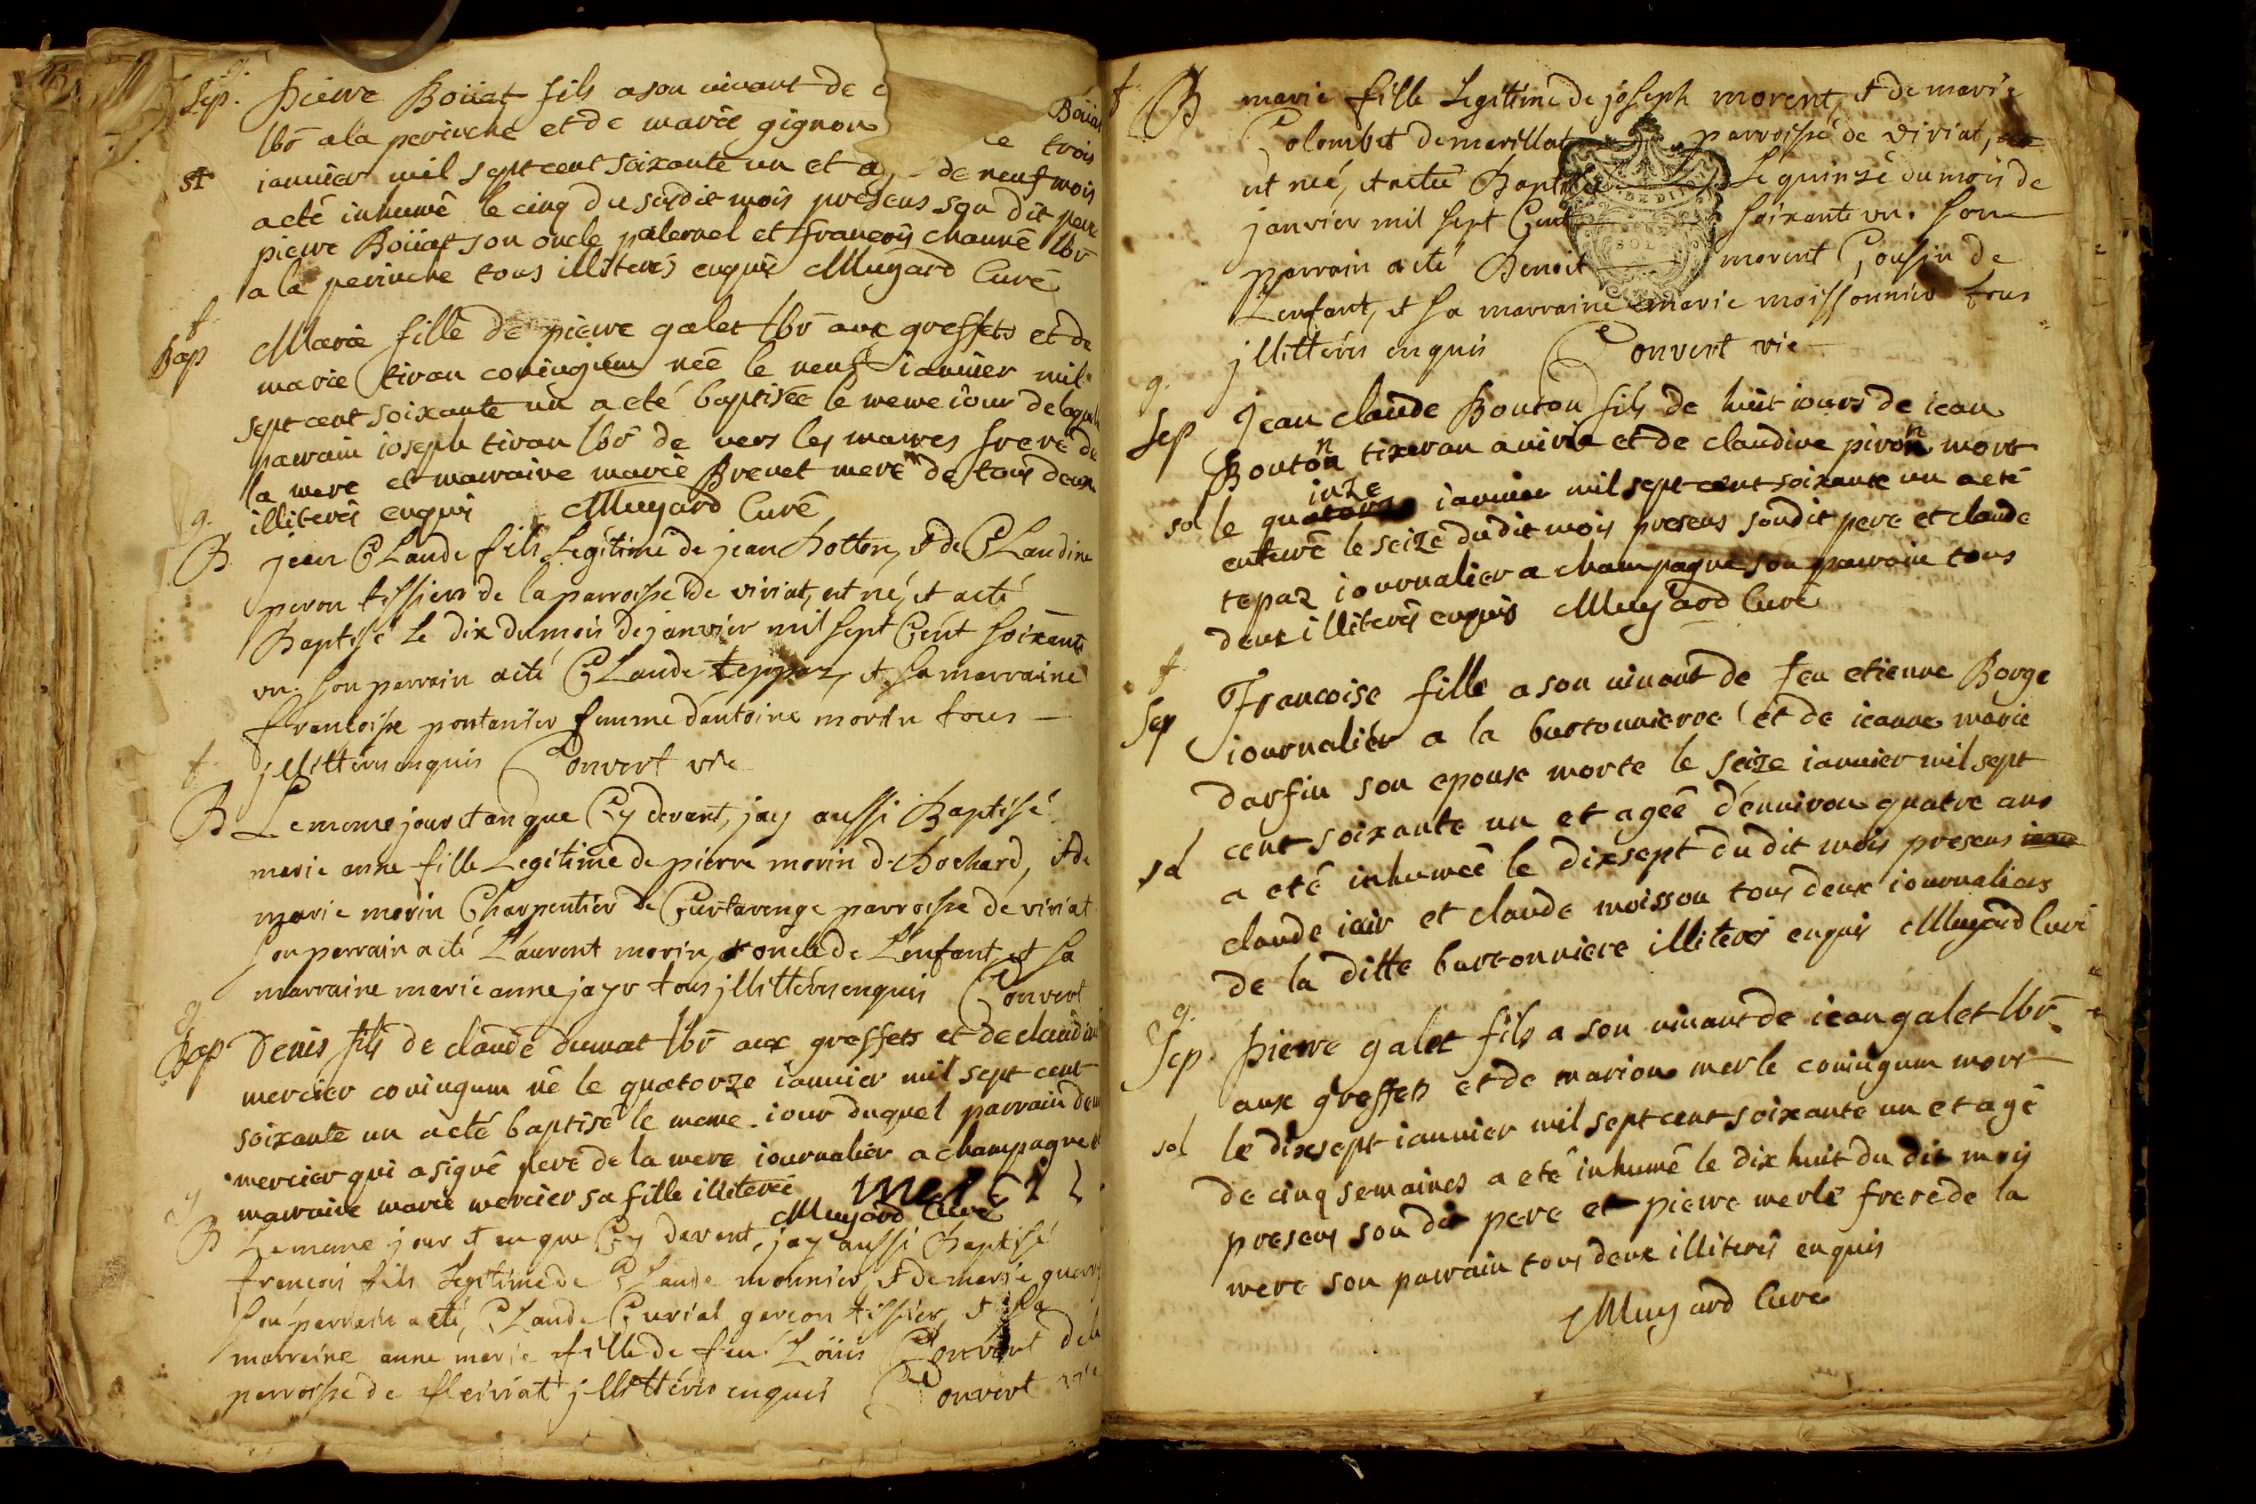 g.
Sep. pierre Boüat fils a son vivant de
Boüat
lbr a la perinche et de marie gignon
le trois
st ianvier mil sept cent soixante un et a de neuf mois
a eté inhumé le cinq du susdit mois presens son dit pere
pierre Boüat son oncle paternel et françois channé lbr
a la perinche tous illiterés enquis Mugard Curé
f.
Bap Marie fille de pierre galet lbr aux greffets et de
marie tivan coniugum née le neuf ianvier mil
sept cent soixante un a eté baptisée le meme iour de laquelle
parrain ioseph tivan lbr de vers les maires frere de
la mere et marraine marie Brevet mere de tous deux
illiterés enquis Mugard Curé
g.
B jean Claude fils Legitime de jean Botton, et de Claudine
peron tissiers de la parroisse de viriat, est né, et a eté
Baptisé Le dix du mois de janvier mil sept Cent soixante
un. son parrain a eté Claude teppaz, et sa marraine
francoise pontanier femme d'antoine morin tous
f.
jllitterés enquis Convert vie
B Le meme jour et an que Cy devant, jay aussi Baptisé
marie anne fille Legitime de pierre morin de Bochard, et de
marie morin Charpentier de Curtarenge parroisse de viriat
son parrain a eté Laurent morin oncle de L'enfant, et sa
marraine marie anne jayr tous jllitterés enquis Convert
g
Bap Denis fils de claude dunat lbr aux greffets et de claudine
mercier coniugum né le quatorze ianvier mil sept cent
soixante un a eté baptisé le meme iour duquel parrain denis
mercier qui a signé pere de la mere iournalier a champagne et
marraine marie mercier sa fille illiterée
Mugard Curé
g
B Le meme jour et an que Cy devant, jay aussi Baptisé
francois fils Legitime de Claude monnier, et de marie
son parrain a eté, Claude Curial garcon tissier, et sa
marraine anne marie fille de feu Loüis Convert de la
parroisse de fleiriat jllitterés enquis Convert vie
f.
B marie fille Legitime de joseph morent, et de marie
Colombet de marillat parroisse de viriat,
est née, et a eté Baptisée Le quinze du mois de
janvier mil sept Cent soixante un. son
parrain a eté Benoit morent Cousin de
L'enfant, et sa marraine marie moissonnier tous
jllitterés enquis Convert vie
g.
Sep Jean claude Bouton fils de huit iours de iean
Bouton tixeran a viria et de claudine piron mort
inze
sol le qu ianvier mil sept cent soixante un a eté
enterré le seize du dit mois presens son dit pere et claude
tepaz iournalier a champagne son parrain tous
deux illiterés enquis Mugard Curé
f.
Sep Francoise fille a son vivant de feu etienne Borge
iournalier a la burtonnierre et de ieanne marie
darfin son epouse morte le seize ianvier mil sept
cent soixante un et agée d'environ quatre ans
sol a eté inhumée le dixsept du dit mois presens
claude iair et claude moisson tous deux iournaliers
de la ditte burtonniere illiterés enquis Mugard Curé
g.
Sep. pierre galet fils a son vivant de iean galet lbr
aux greffets et de marion merle coniugum mort
sol le dixsept ianvier mil sept cent soixante un et agé
de cinq semaines a eté inhumé le dix huit du dit mois
presens son dit pere et pierre merle frere de la
mere son parrain tous deux illiterés enquis
Mugard Curé